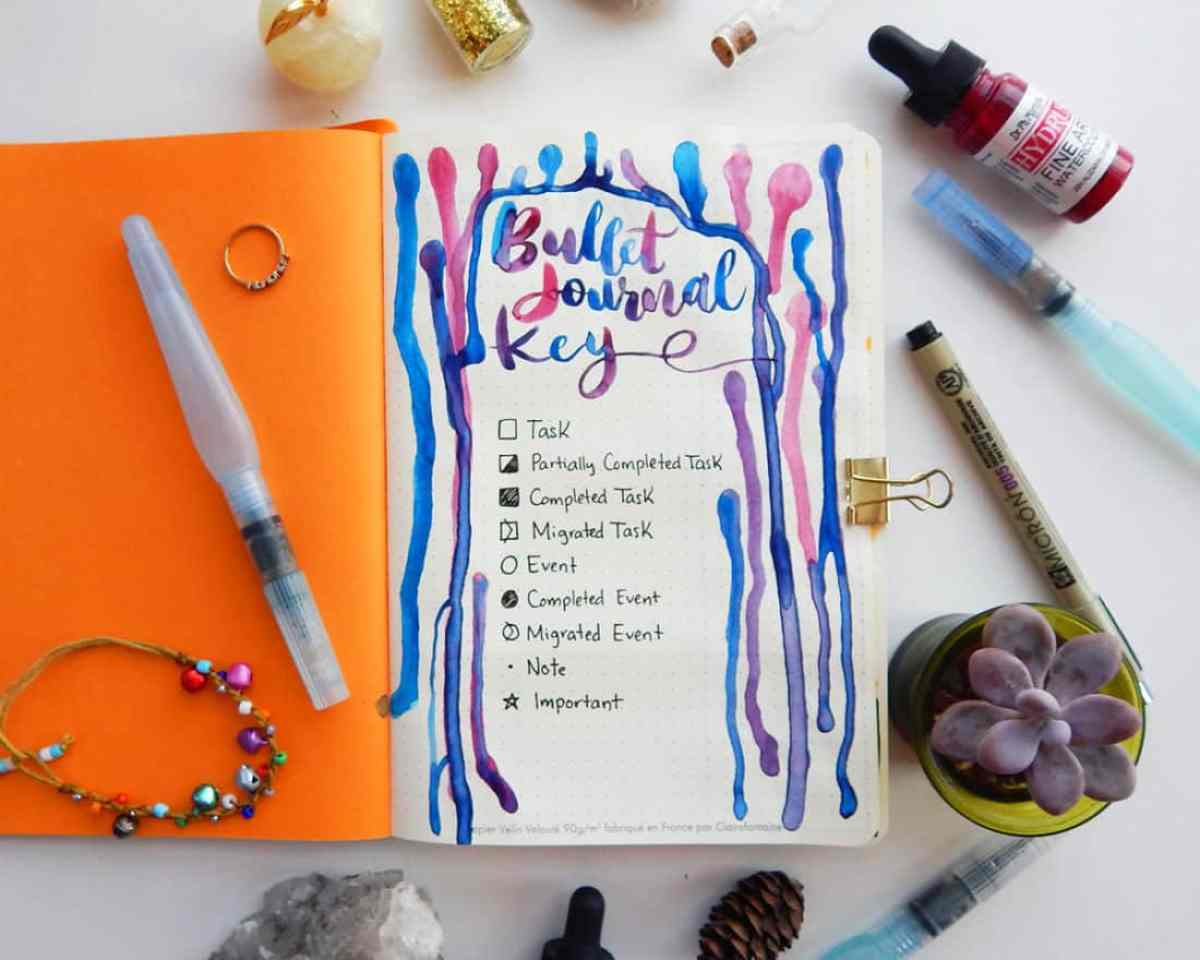 Bullet
Journal
Key
Task
Partially Completed Task
Completed Task
Migrated Task
Event
Completed Event
Migrated Event
Note
Important
papier Velin Velouté 90g/m² fabriqué en France par Clairefontaine
HYDRUS
FINE ART
WATERCOLOR
MICRON 005